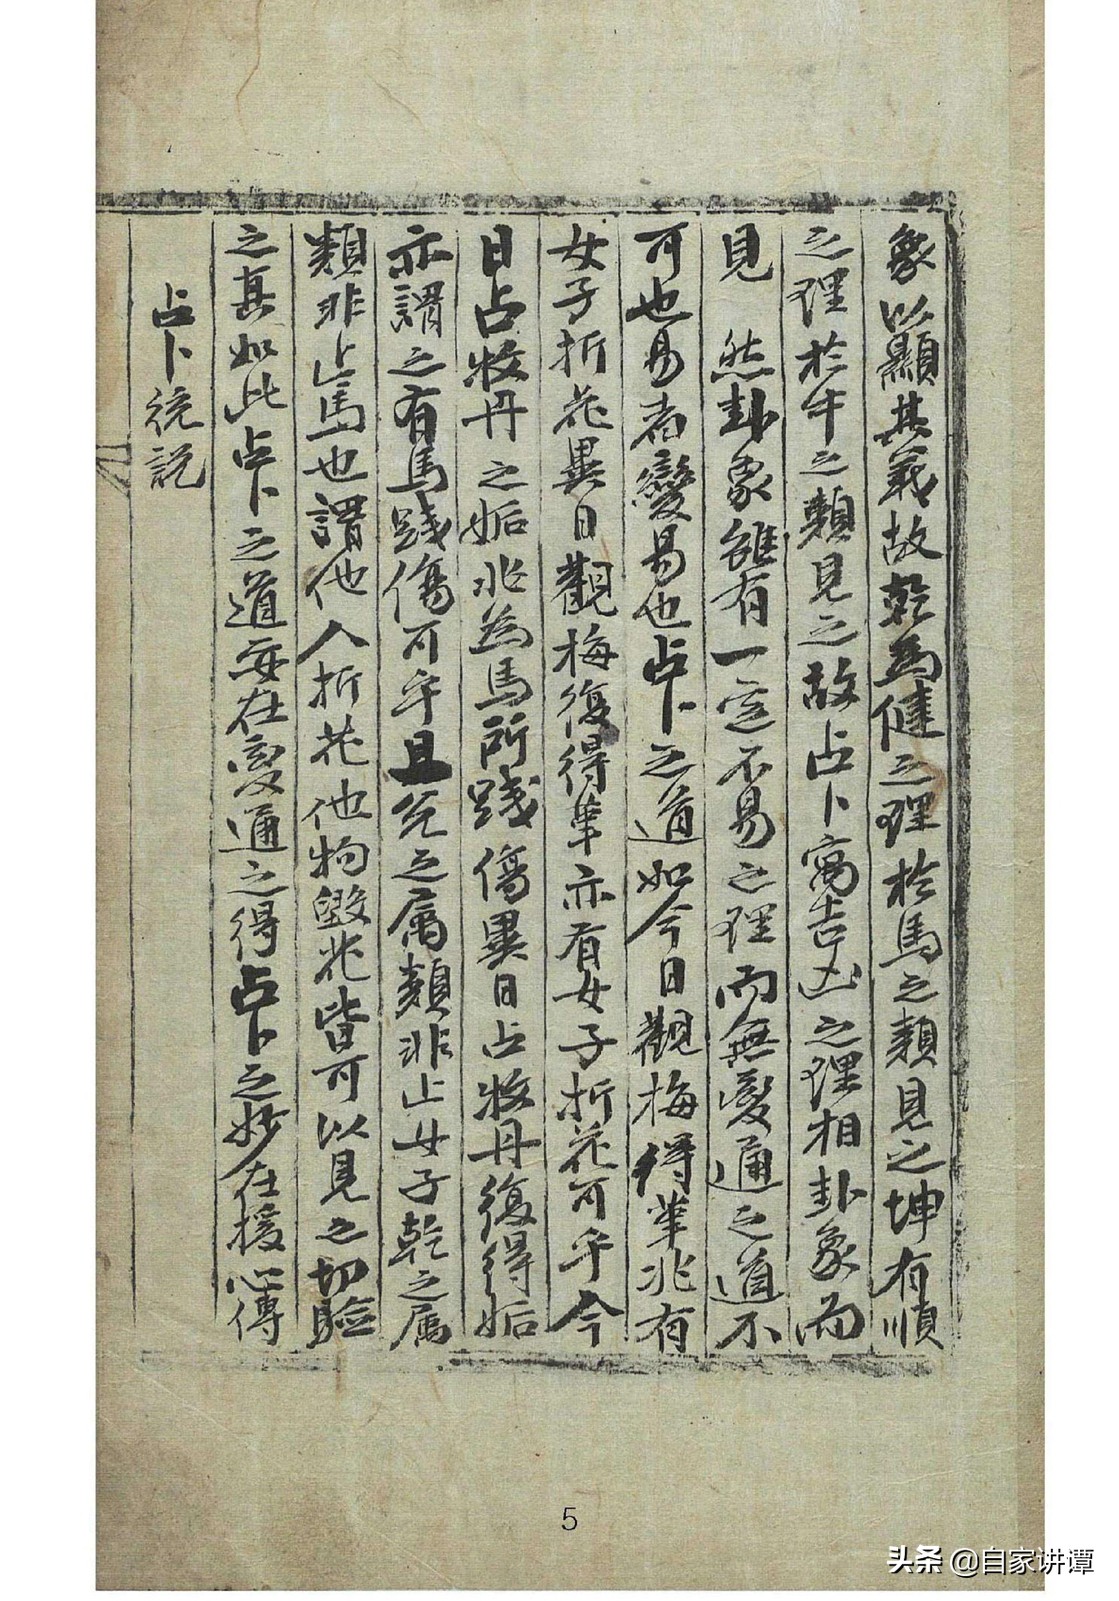 象以顯其義故乾為健之理於馬之類見之坤有順
之理於牛之類見之故占卜寓吉凶之理相卦象而
見　然卦象雖有一定不易之理而無變通之道不
可也易者變易也占卜之道如今日觀梅得革兆有
女子折花異日觀梅復得革亦有女子折花可乎今
日占牧丹之姤兆為馬所踐傷異日占牧丹復得姤
亦謂之有馬踐傷可乎且兌之屬類非止女子乾之屬
類非止馬也謂他人折花他物毀花皆可以見之切驗
之真如此占卜之道要在變通之得占卜之妙在援心傳
占卜統說
5
头条 @自家讲谭